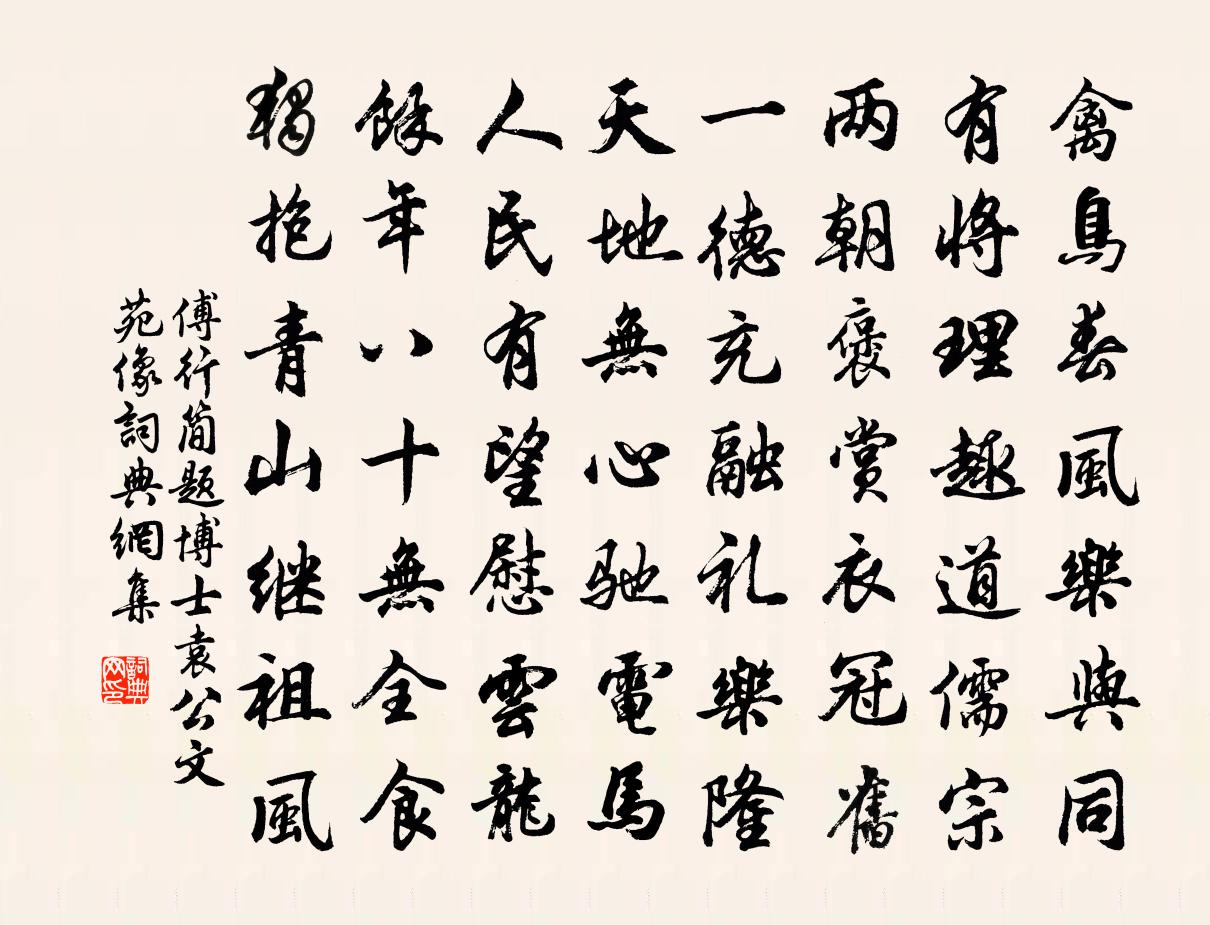 禽鳥春風樂與同
有將理趣道儒宗
两朝褒賞衣冠舊
一德充融礼樂隆
天地無心馳電馬
人民有望慰雲龍
餘年八十無全食
獨抱青山继祖風
傅行簡题博士袁公文
苑像詞典網集
詞典网印